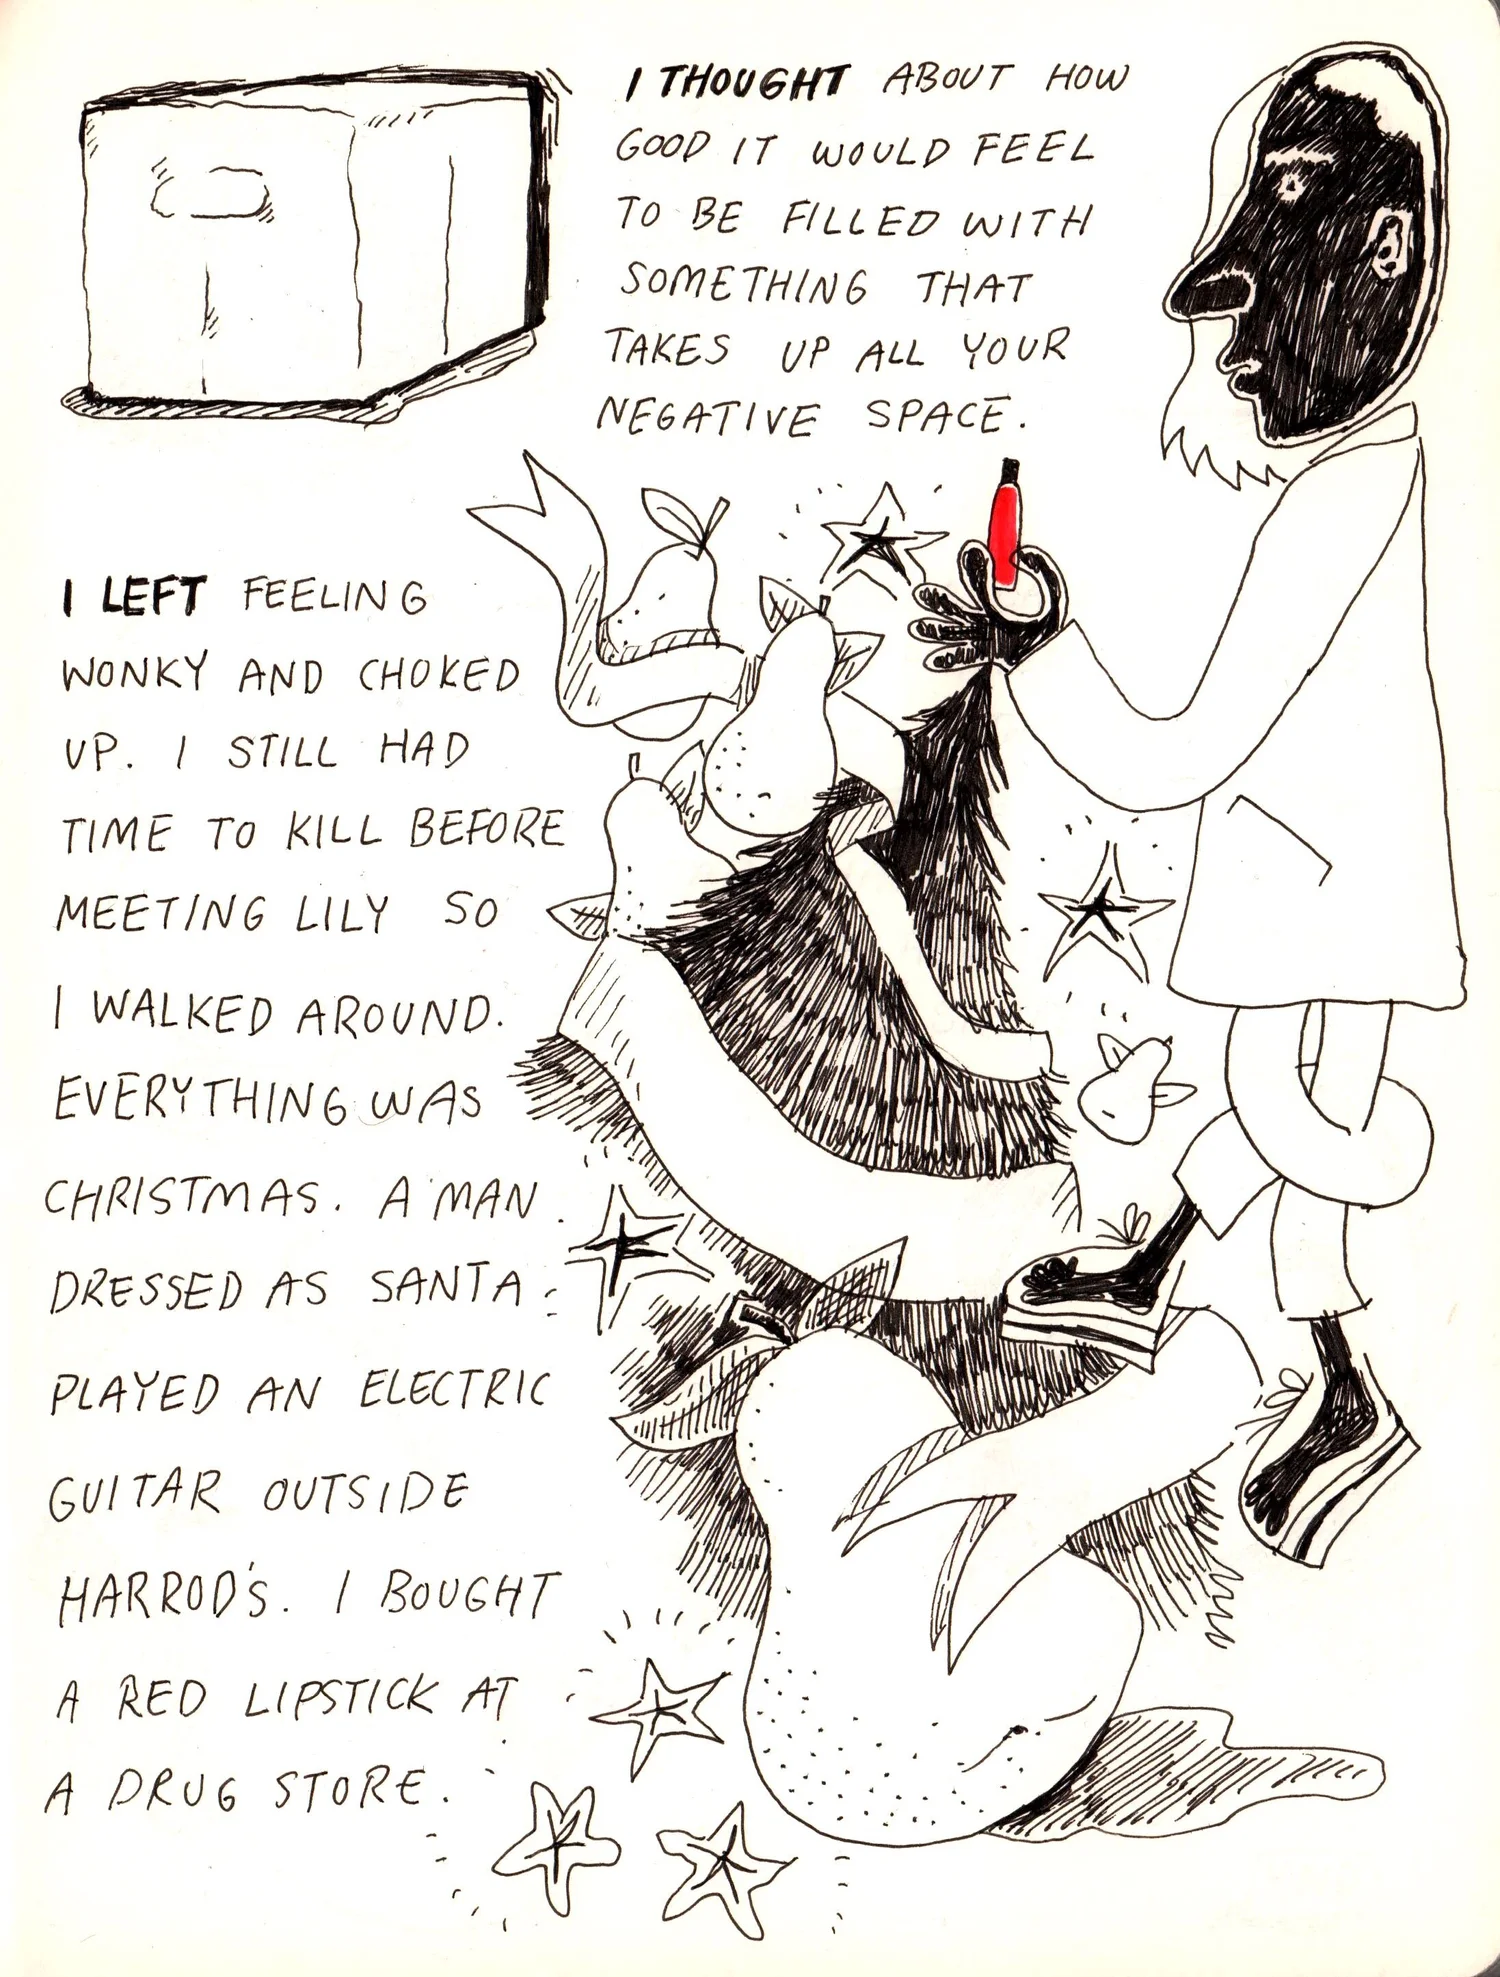 I THOUGHT ABOUT HOW
GOOD IT WOULD FEEL
TO BE FILLED WITH
SOMETHING THAT
TAKES UP ALL YOUR
NEGATIVE SPACE.
I LEFT FEELING
WONKY AND CHOKED
UP. I STILL HAD
TIME TO KILL BEFORE
MEETING LILY SO
I WALKED AROUND.
EVERYTHING WAS
CHRISTMAS. A MAN
DRESSED AS SANTA
PLAYED AN ELECTRIC
GUITAR OUTSIDE
HARROD'S. I BOUGHT
A RED LIPSTICK AT
A DRUG STORE.